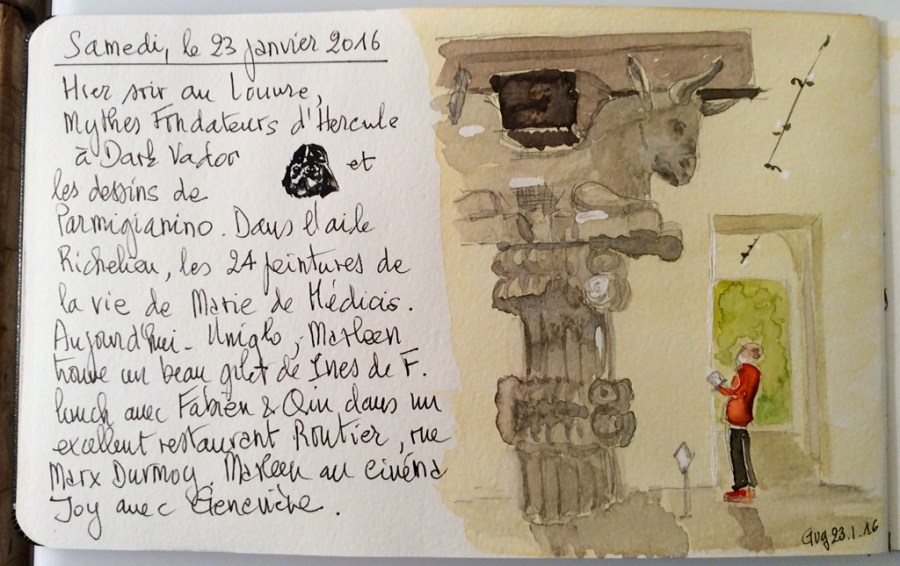 Samedi, le 23 janvier 2016
Hier soir au Louvre,
Mythes Fondateurs d'Hercule
à Dark Vador et
les dessins de
Parmigianino. Dans l'aile
Richelieu, les 24 peintures de
la vie de Marie de Médicis.
Aujourd'hui - Uniqlo, Marleen
trouve un beau gilet de Ines de F.
lunch avec Fabien & Qin dans un
excellent restaurant Routier, rue
Marx Durmoy. Marleen au cinéma
Joy avec Geneviève.
Gug 23.1.16